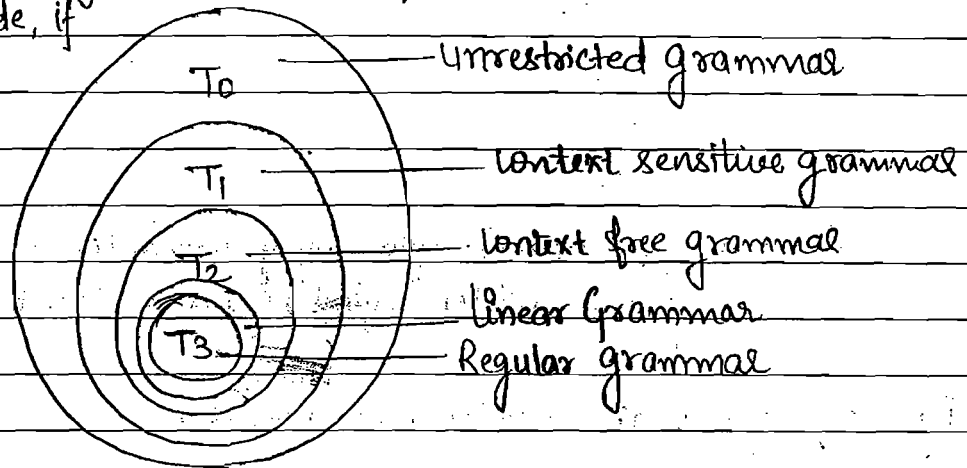 de, if
T0 unrestricted grammar
T1 context sensitive grammar
T2 context free grammar
linear Grammar
T3 Regular grammar